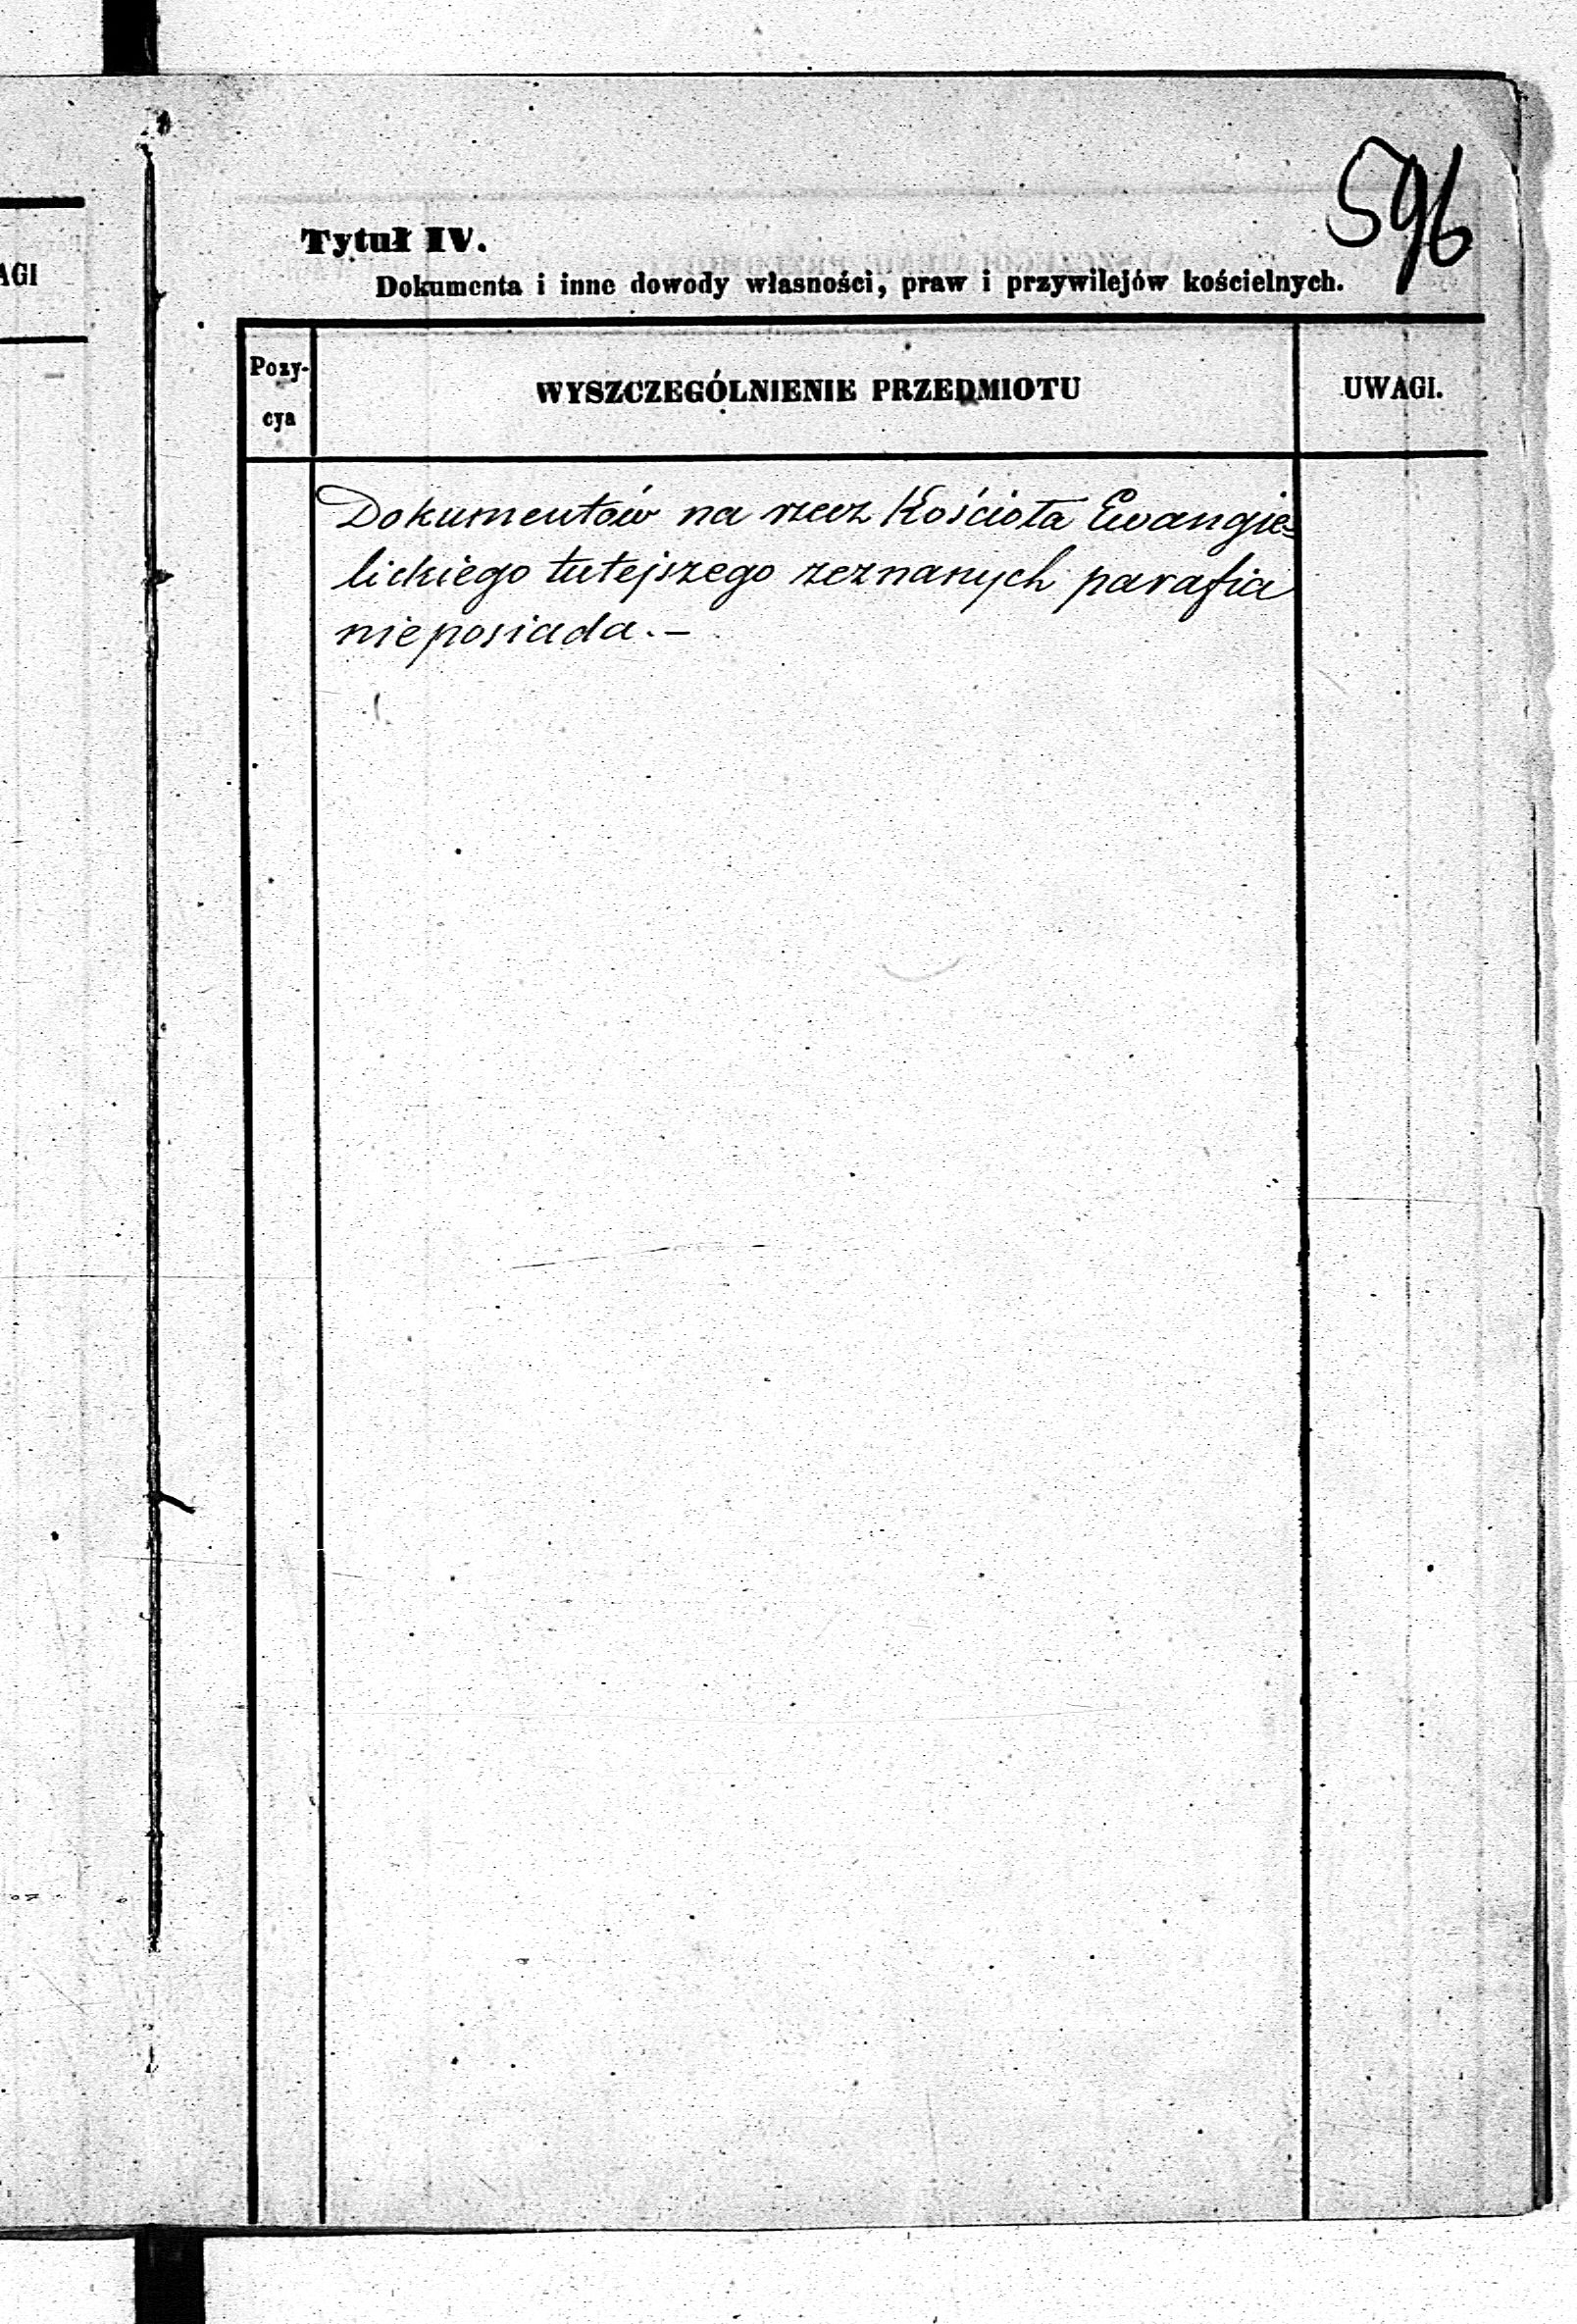 596
AGI
Tytuł IV.
Dokumenta i inne dowody własności, praw i przywilejów kościelnych.
Pozy-
cya
WYSZCZEGÓLNIENIE PRZEDMIOTU
UWAGI.
Dokumentów na rzecz Kościoła Ewangie-
lickiego tutejszego zeznanych parafia
nieposiada.—